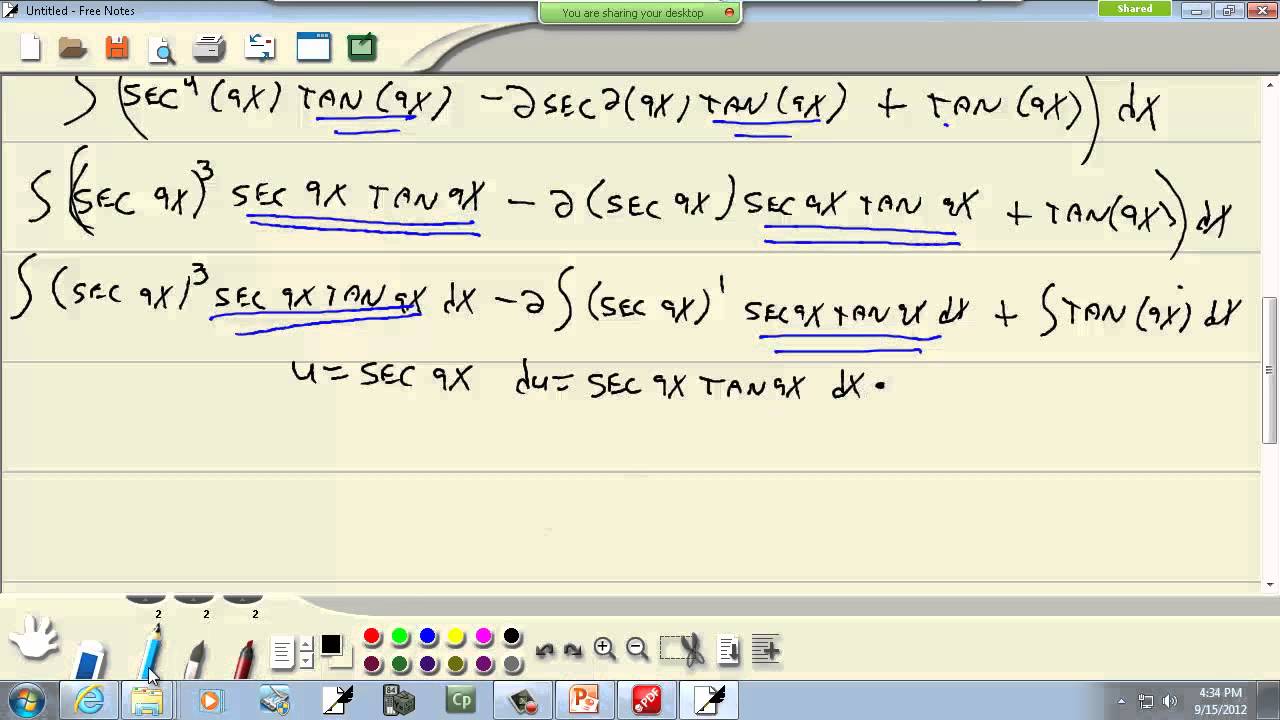 Untitled - Free Notes
You are sharing your desktop
Shared
∫(SEC⁴(9X) TAN(9X) - 2SEC2(9X) TAN(9X) + TAN(9X)) dX
∫((SEC 9X)³ SEC 9X TAN 9X - 2(SEC 9X) SEC 9X TAN 9X + TAN(9X)) dX
∫(SEC 9X)³ SEC 9X TAN 9X dX - 2∫(SEC 9X)¹ SEC 9X TAN 9X dX + ∫TAN(9X) dX
U = SEC 9X du = SEC 9X TAN 9X dX ·
2 2 2
Cp
PDF
4:34 PM
9/15/2012